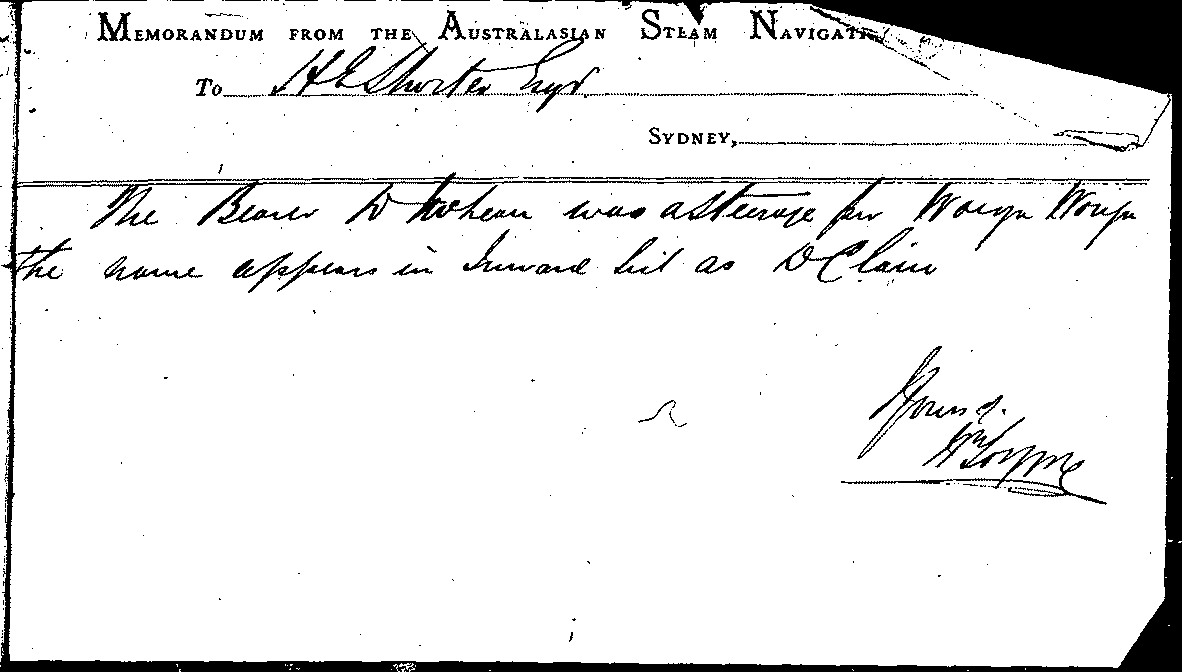 MEMORANDUM FROM THE AUSTRALASIAN STEAM NAVIGATI
To H E Shorter Esqr
SYDNEY,
The Bearer D was a Steerage per Wonga Wonga
the name appears in Inward list as D Clain
Yours &.
Wm